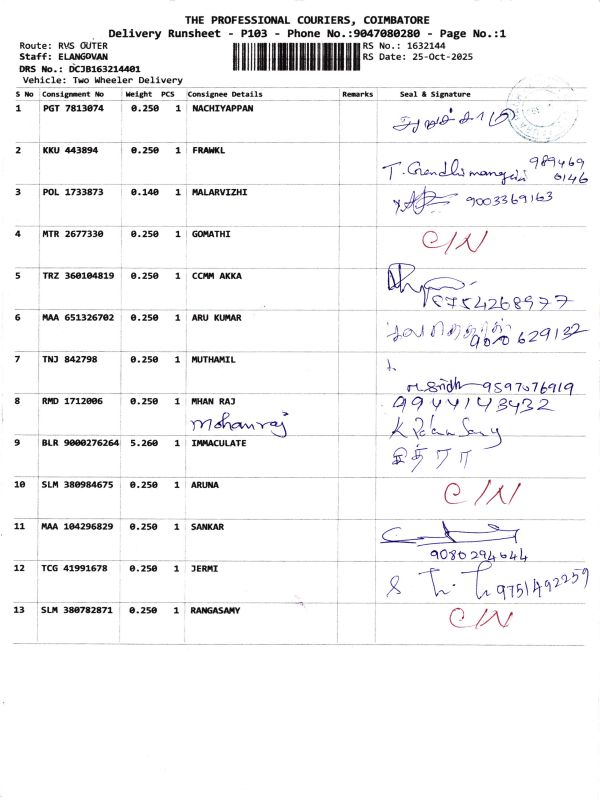 THE PROFESSIONAL COURIERS, COIMBATORE
Delivery Runsheet - P103 - Phone No.:9047080280 - Page No.:1
Route: RVS OUTER RS No.: 1632144
Staff: ELANGOVAN RS Date: 25-Oct-2025
DRS No.: DCJB163214401
Vehicle: Two Wheeler Delivery
S No Consignment No Weight PCS Consignee Details Remarks Seal & Signature
1 PGT 7813074 0.250 1 NACHIYAPPAN
2 KKU 443894 0.250 1 FRAWKL 989469
0146
3 POL 1733873 0.140 1 MALARVIZHI 9003369163
4 MTR 2677330 0.250 1 GOMATHI C/N
5 TRZ 360104819 0.250 1 CCMM AKKA
8754268977
6 MAA 651326702 0.250 1 ARU KUMAR
7 TNJ 842798 0.250 1 MUTHAMIL
9597076919
8 RMD 1712006 0.250 1 MHAN RAJ 9944143432
Mohanraj
9 BLR 9000276264 5.260 1 IMMACULATE
10 SLM 380984675 0.250 1 ARUNA C/N
11 MAA 104296829 0.250 1 SANKAR
9080294644
12 TCG 41991678 0.250 1 JERMI 9751492259
13 SLM 380782871 0.250 1 RANGASAMY C/N